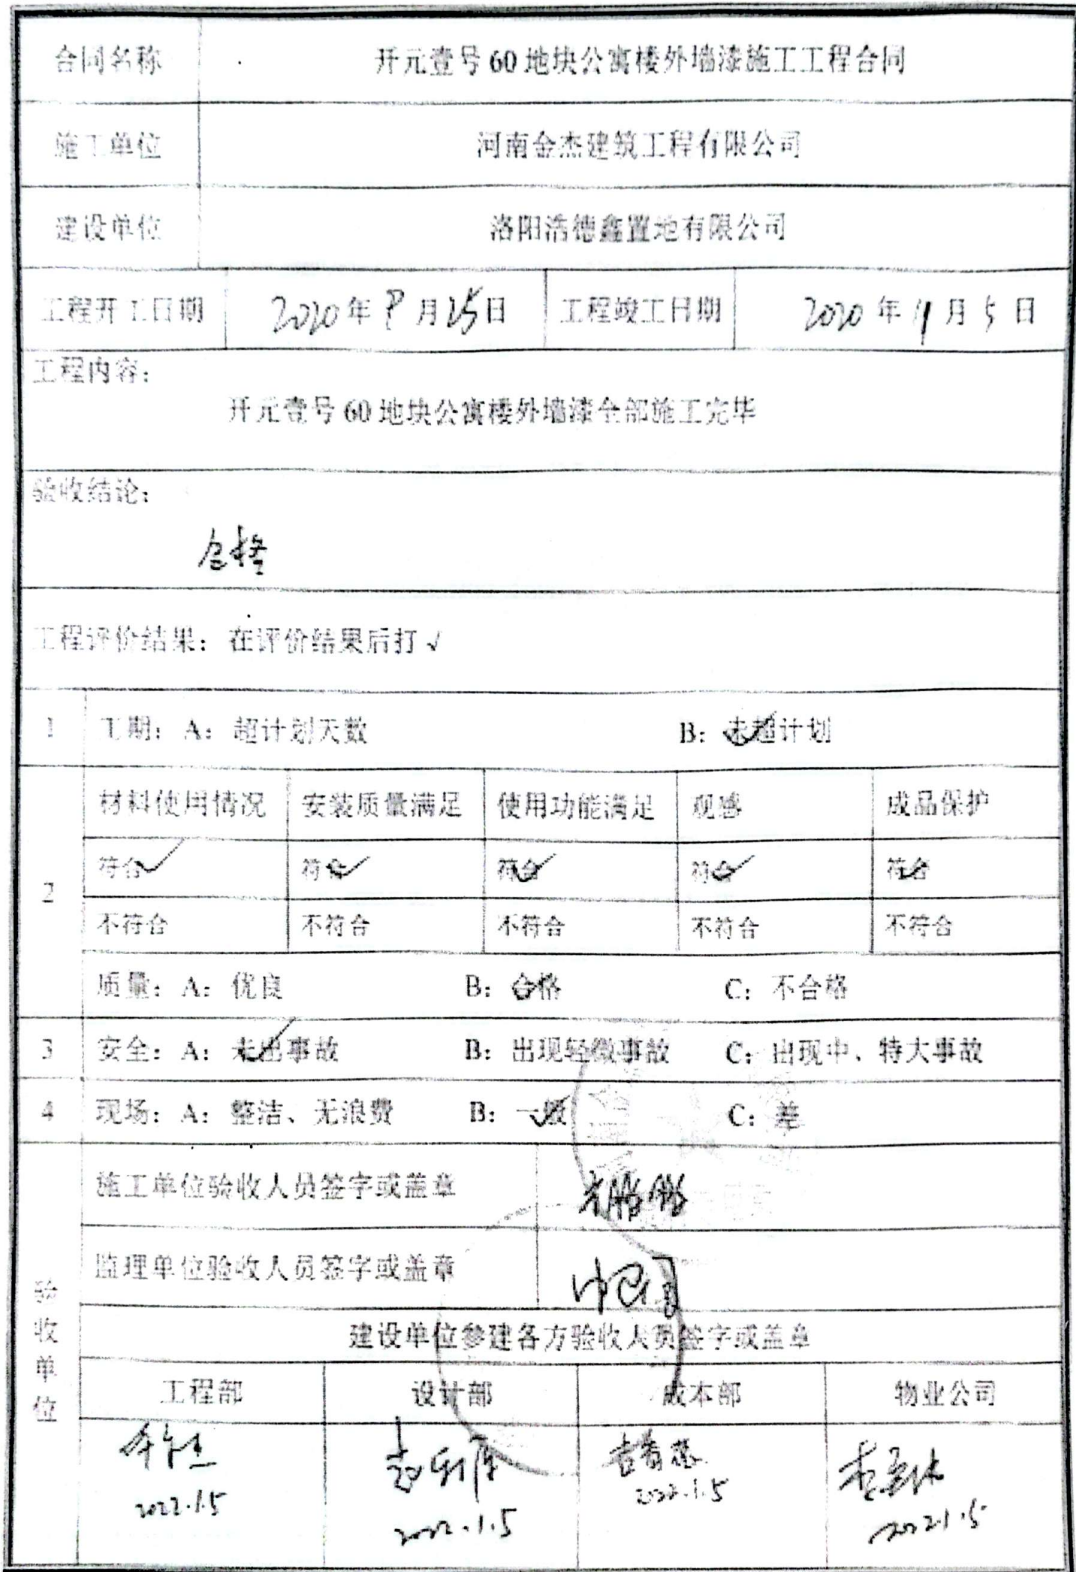 合同名称 开元壹号 60 地块公寓楼外墙漆施工工程合同
施工单位 河南金杰建筑工程有限公司
建设单位 洛阳浩德鑫置地有限公司
工程开工日期 2020年8月25日 工程竣工日期 2020年11月5日
工程内容：
开元壹号 60 地块公寓楼外墙漆全部施工完毕
验收结论：
合格
工程评价结果：在评价结果后打√
1 工期：A：超计划天数 B：未超计划
材料使用情况 安装质量满足 使用功能满足 观感 成品保护
2
符合✓ 符合✓ 符合✓ 符合✓ 符合✓
不符合 不符合 不符合 不符合 不符合
质量：A：优良 B：合格 C：不合格
3 安全：A：未出事故 B：出现轻微事故 C：出现中、特大事故
4 现场：A：整洁、无浪费 B：一般 C：差
验收单位
施工单位验收人员签字或盖章
监理单位验收人员签字或盖章
建设单位参建各方验收人员签字或盖章
工程部 设计部 成本部 物业公司
2022.1.5 2022.1.5 2022.1.5 2022.1.5